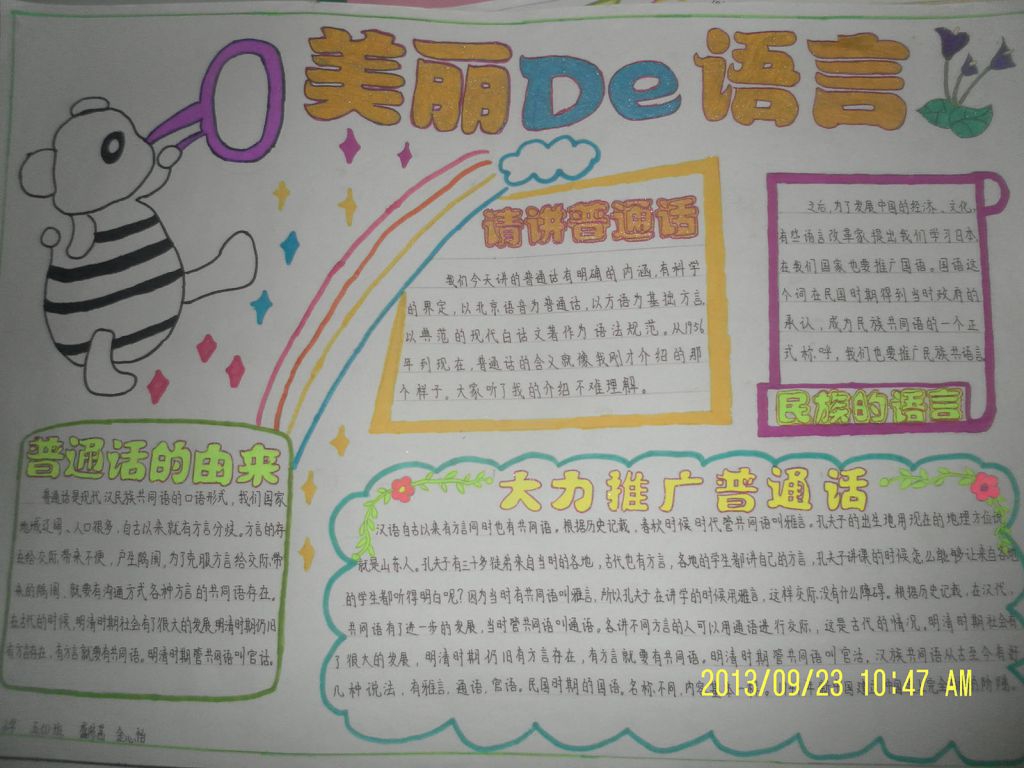 美丽De语言
请讲普通话
我们今天讲的普通话有明确的内涵,有科学
的界定,以北京语音为普通话,以方语为基础方言,
以典范的现代白话文著作为语法规范。从1956
年到现在,普通话的含义就像我刚才介绍的那
个样子。大家听了我的介绍不难理解。
之后,为了发展中国的经济、文化,
有些语言改革家提出我们学习日本,
在我们国家也要推广国语。国语这
个词在民国时期得到当时政府的
承认,成为民族共同语的一个正
式称呼,我们也要推广民族共语言
民族的语言
普通话的由来
普通话是现代汉民族共同语的口语形式,我们国家
地域辽阔、人口很多,自古以来就有方言分歧。方言的存
在给交际带来不便,产生隔阂,为了克服方言给交际带
来的隔阂、就要有沟通方式各种方言的共同语存在。
在古代的时候,明清时期社会有了很大的发展明清时期仍旧
有方言存在,有方言就要有共同语。明清时期管共同语叫官话。
大力推广普通话
汉语自古以来有方言同时也有共同语。根据历史记载,春秋时候时代管共同语叫雅言。孔夫子的出生地用现在的地理方位说
就是山东人。孔夫子有三十多徒弟来自当时的各地,古代也有方言,各地的学生都讲自己的方言,孔夫子讲课的时候怎么能够让来自各地
的学生都听得明白呢?因为当时有共同语叫雅言,所以孔夫子在讲学的时候用雅言,这样交际没有什么障碍。根据历史记载,在汉代,
共同语有了进一步的发展,当时管共同语叫通语。各讲不同方言的人可以用通语进行交际,这是古代的情况。明清时期社会有
了很大的发展,明清时期仍旧有方言存在,有方言就要有共同语。明清时期管共同语叫官话,汉族共同语从古至今有好
几种说法,有雅言,通语,官语,民国时期的国语。名称不同,内
2013/09/23 10:47 AM